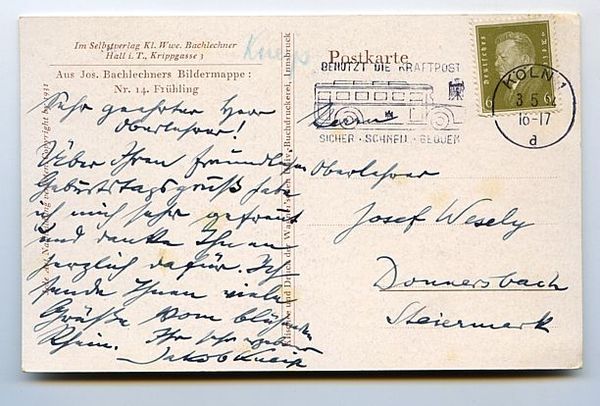 Im Selbstverlag Kl. Wwe. Bachlechner
Hall i. T., Krippgasse 3
Aus Jos. Bachlechners Bildermappe:
Nr. 14. Frühling
Sehr geehrter Herr
Oberlehrer!
Über Ihren freundlichen
Geburtstagsgruß habe
ich mich sehr gefreut
und danke Ihnen
herzlich dafür. Ich
sende Ihnen viele
Grüße vom blühenden
Rhein. Ihr sehr
Jakob Kneip
Kneip
Postkarte
BENÜTZT DIE KRAFTPOST
SICHER - SCHNELL - BEQUEM
Deutsches Reich
6 6
KÖLN 1
3 5
16-17
d
Herrn
Oberlehrer
Josef Wesely
Donnersbach
Steiermark
Klischee und Druck der Wagner'schen Univ.-Buchdruckerei, Innsbruck